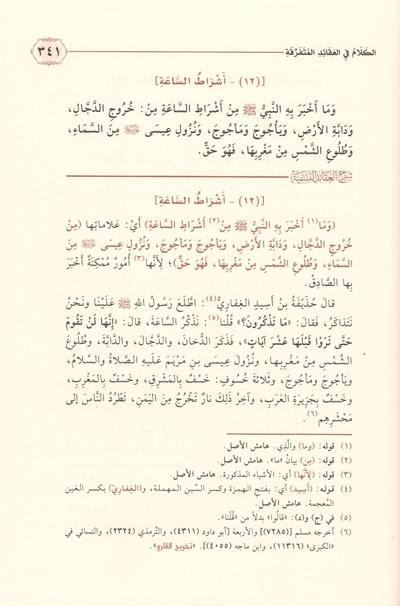 الكَلَامُ فِي العَقَائِدِ المُتَفَرِّقَةِ
٣٤١
[(١٢) - أَشْرَاطُ السَّاعَةِ]
وَمَا أَخْبَرَ بِهِ النَّبِيُّ ﷺ مِنْ أَشْرَاطِ السَّاعَةِ مِنْ: خُرُوجِ الدَّجَّالِ،
وَدَابَّةِ الأَرْضِ، وَيَأْجُوجَ وَمَأْجُوجَ، وَنُزُولِ عِيسَى مِنَ السَّمَاءِ،
وَطُلُوعِ الشَّمْسِ مِنْ مَغْرِبِهَا، فَهُوَ حَقٌّ.
شرح العقائد النسفية
[(١٢) - أَشْرَاطُ السَّاعَةِ]
(وَمَا(١) أَخْبَرَ بِهِ النَّبِيُّ ﷺ مِنْ(٢) أَشْرَاطِ السَّاعَةِ) أَيْ: عَلَامَاتِها (مِنْ
خُرُوجِ الدَّجَّالِ، وَدَابَّةِ الأَرْضِ، وَيَأْجُوجَ وَمَأْجُوجَ، وَنُزُولِ عِيسَى مِنَ
السَّمَاءِ، وَطُلُوعِ الشَّمْسِ مِنْ مَغْرِبِهَا، فَهُوَ حَقٌّ)؛ لِأَنَّها(٣) أُمُورٌ مُمْكِنَةٌ أَخْبَرَ
بِها الصَّادِقُ.
قالَ حُذَيْفَةُ بْنُ أَسِيدٍ الغِفارِيُّ(٤): اطَّلَعَ رَسُولُ اللهِ ﷺ عَلَيْنَا وَنَحْنُ
نَتَذَاكَرُ، فَقَالَ: «مَا تَذْكُرُونَ؟» قُلْنَا(٥): نَذْكُرُ السَّاعَةَ، قالَ: «إِنَّهَا لَنْ تَقُومَ
حَتَّى تَرَوْا قَبْلَهَا عَشْرَ آيَاتٍ»، فَذَكَرَ الدُّخانَ، والدَّجَّالَ، والدَّابَّةَ، وطُلُوعَ
الشَّمْسِ مِنْ مَغْرِبِها، ونُزُولَ عِيسَى بنِ مَرْيَمَ عَلَيهِ الصَّلاةُ والسَّلامُ،
ويَأْجُوجَ ومَأْجُوجَ، وثَلاثَةَ خُسُوفٍ: خَسْفٌ بِالمَشْرِقِ، وخَسْفٌ بِالمَغْرِبِ،
وخَسْفٌ بِجَزِيرَةِ العَرَبِ، وآخِرُ ذَلِكَ نارٌ تَخْرُجُ مِنَ اليَمَنِ، تَطْرُدُ النَّاسَ إلى
مَحْشَرِهِم(٦).
(١) قوله: (وما) والَّذِي. هامش الأصل.
(٢) قوله: (مِن) بيانُ «ما». هامش الأصل.
(٣) قوله: (لِأَنَّها) أي: الأشياء المذكورة. هامش الأصل.
(٤) قوله: (أَسِيد) أي: بفتح الهمزة وكسر السِّين المهملة، و(الغِفاري) بكسر الغين
المُعجمة. هامش الأصل.
(٥) في (ج) و(د): «قالوا» بدلاً من «قُلْنا».
(٦) أخرجه مسلم [(٧٢٨٥)] والأربعة [أبو داود (٤٣١١)، والتِّرمذي (٢٣٢٤)، والنسائي في
«الكبرى» (١١٣١٦)، وابن ماجه (٤٠٥٥)]. «تخريج القاري».